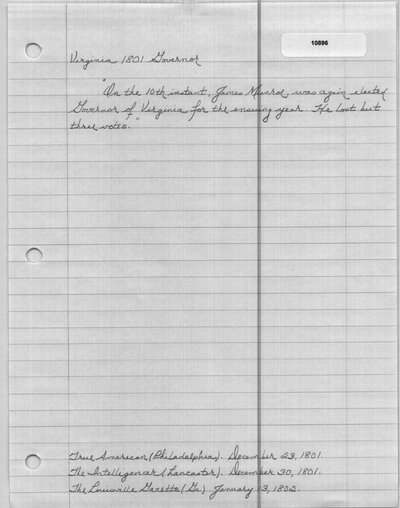 10896
Virginia 1801 Governor
"On the 10th instant, James Munroe, was again elected
Governor of Virginia for the ensuing year. He lost but
three votes."
True American (Philadelphia). December 23, 1801.
The Intelligencer (Lancaster). December 30, 1801.
The Louisville Gazette (Ga) January 13, 1802.